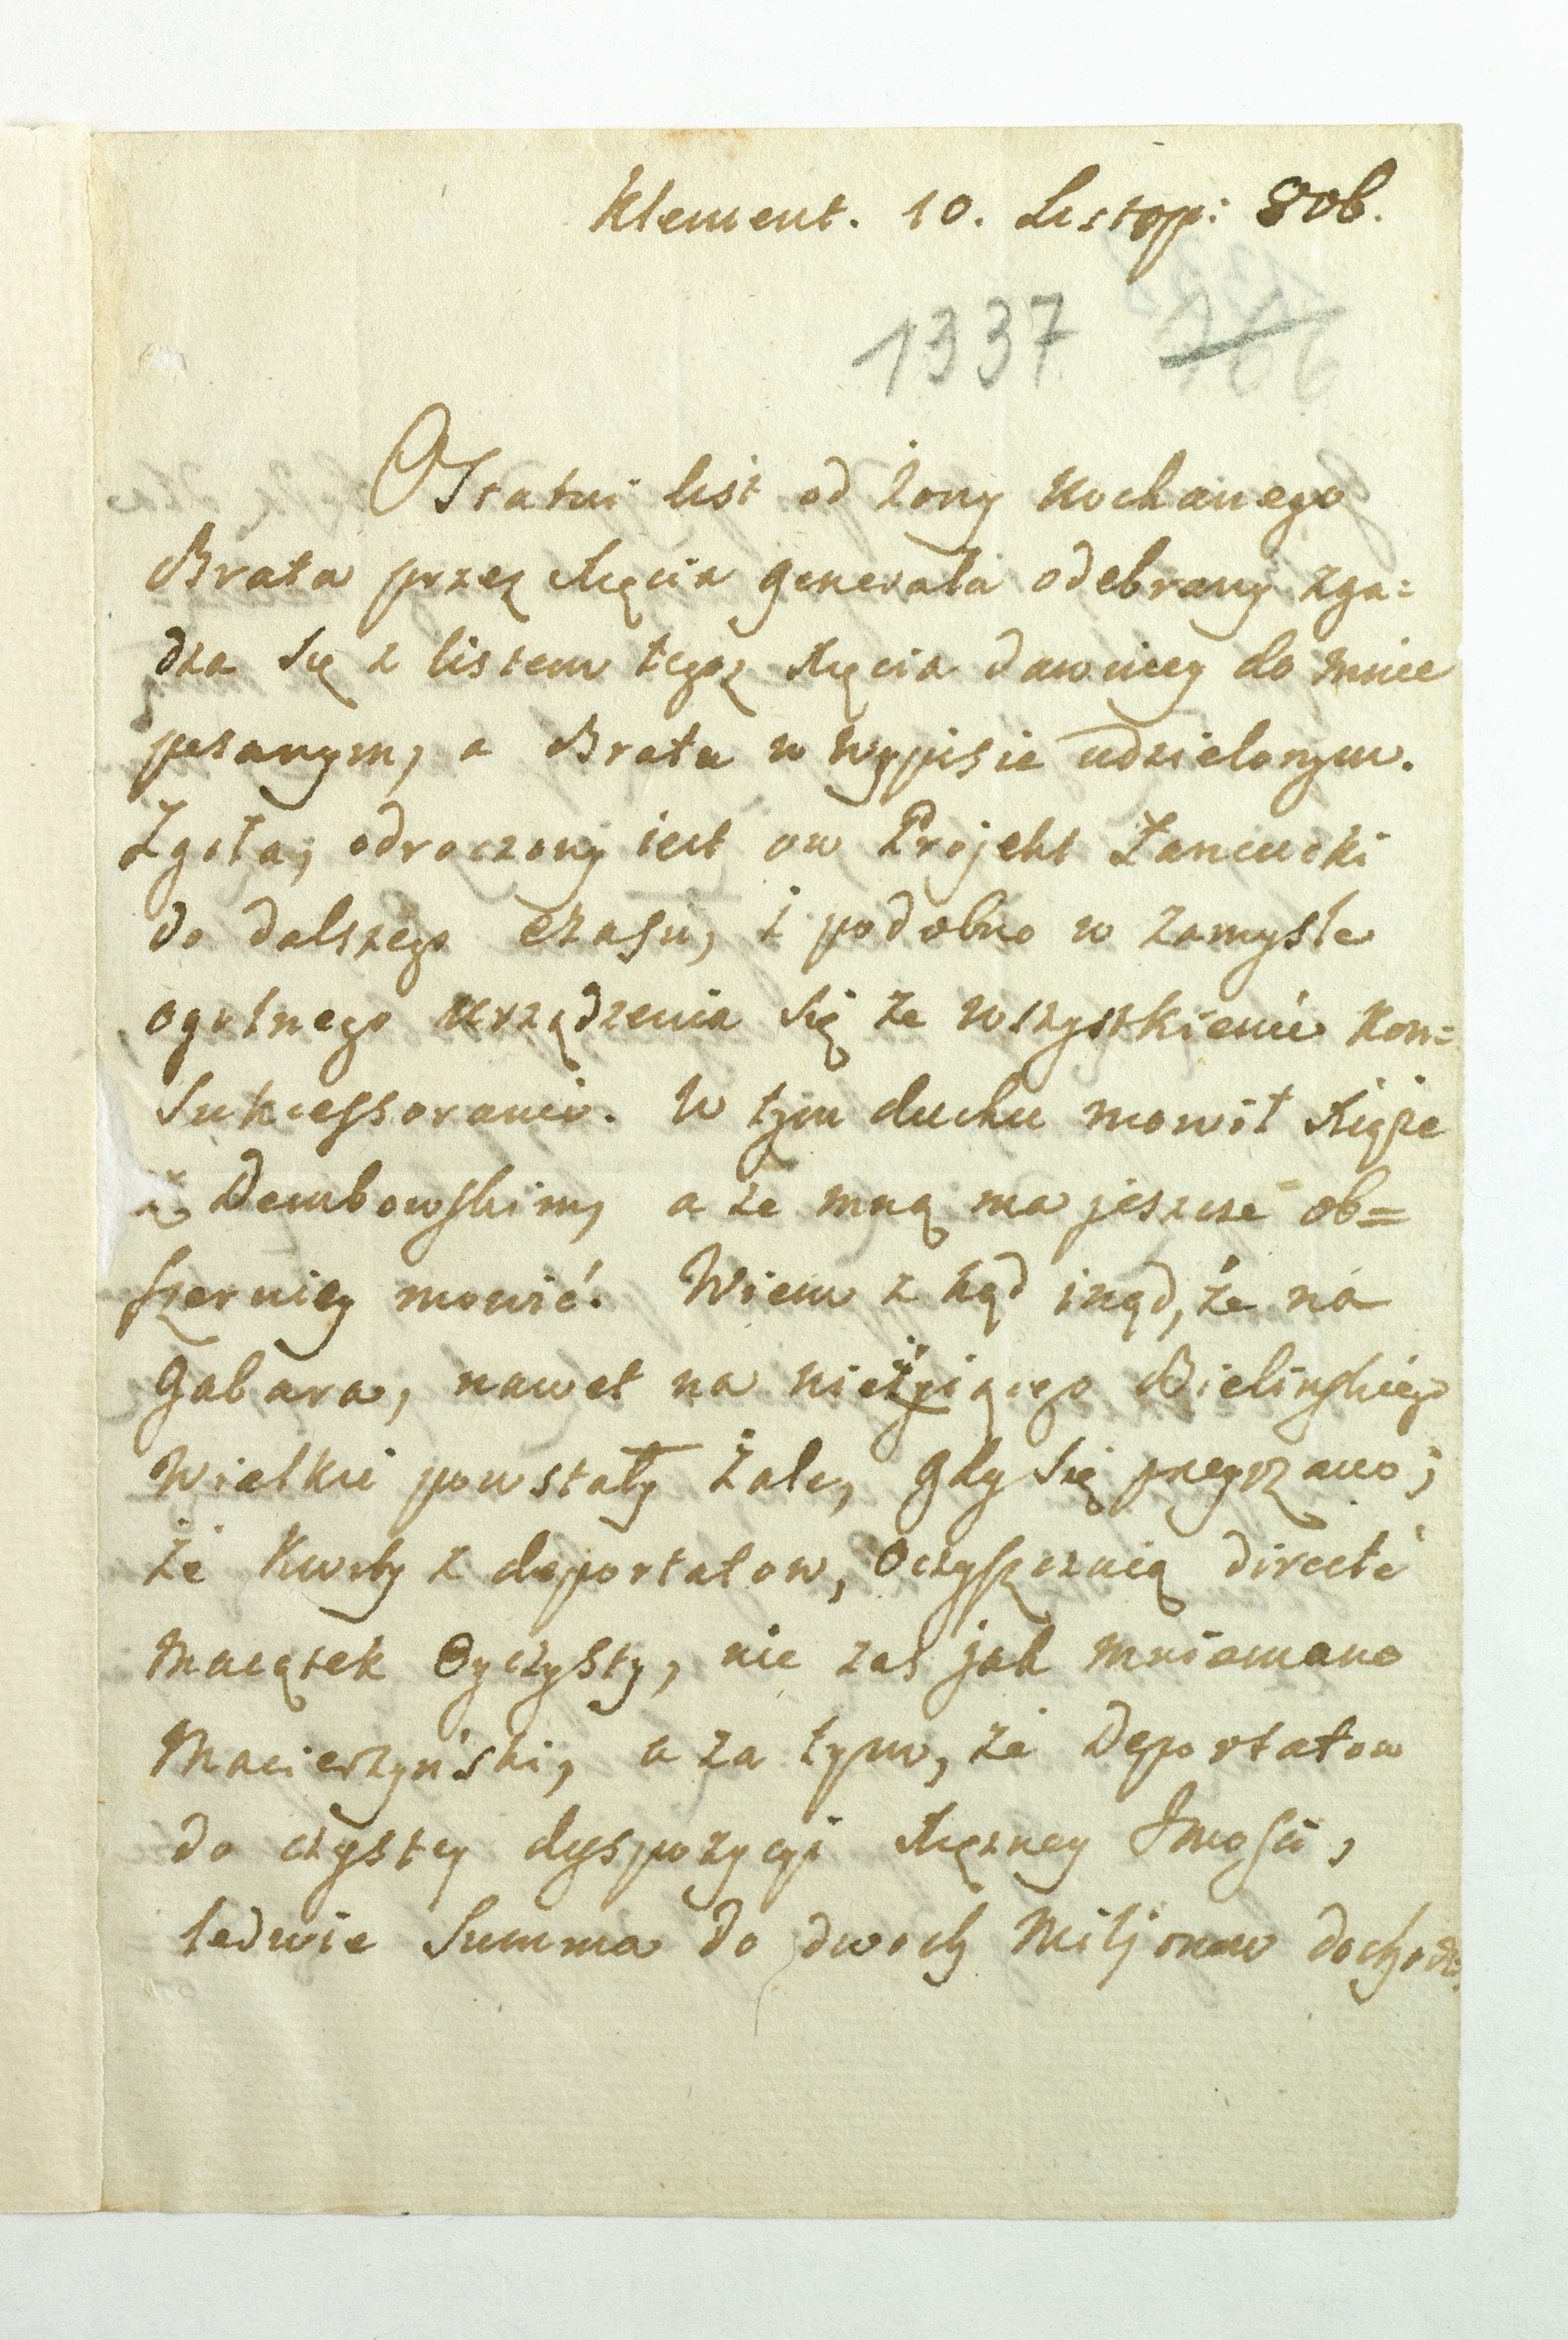 Klement. 10. Listop: 806.
1337 766
OStatni list od żony Kochanego
Brata przez Xięcia Generała odebrany zga=
dza się z listem tegoż Xięcia dawniey do mnie
pisanym, a Bratu w wypisie udzielonym.
Zgoła, odroczony iest ów Projekt Łancucki
do dalszego czasu, i podobno w zamyśle
ogolnego urządzenia się ze wszystkiemi Kon=
Sukcessorami. W tym duchu mowił Xiąże
z Dembowskim, a ze mną ma jeszcze ob=
szerniey mowić. Wiem z kąd inąd, że na
Gabara, nawet na nieżyiącego Bielinskiego
Wielkie powstały żale, gdy się przeyrzano;
że Kwoty z deportatow, Oczyszczaią directe
Maiątek Oyczysty, nie zas jak mniemano
Macierzyński, a za tym, że Deportatow
do czystey dyspozycyi Xiężney Jmości,
ledwie Summa do dwoch Miljonow dochodzi.